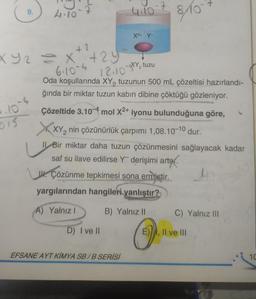 8.
4.10⁻⁷
4.10⁻⁷ 8/10⁻⁷
X²⁺ Y⁻
XY₂ ⇌ X⁺² + 2Y⁻
6.10⁻⁴ 12.10⁻⁴
XY₂ tuzu
Oda koşullarında XY₂ tuzunun 500 mL çözeltisi hazırlandı-
ğında bir miktar tuzun kabın dibine çöktüğü gözleniyor.
Çözeltide 3.10⁻⁴ mol X²⁺ iyonu bulunduğuna göre,
I. XY₂ nin çözünürlük çarpımı 1,08.10⁻¹⁰ dur.
II. Bir miktar daha tuzun çözünmesini sağlayacak kadar
saf su ilave edilirse Y⁻ derişimi artar.
III. Çözünme tepkimesi sona ermiştir.
yargılarından hangileri yanlıştır?
A) Yalnız I B) Yalnız II C) Yalnız III
D) I ve II E) I, II ve III
EFSANE AYT KİMYA SB / B SERİSİ
10